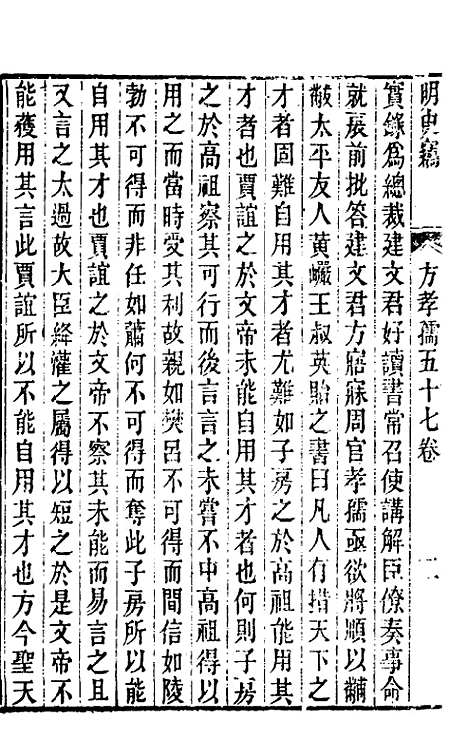 明史竊 方孝孺五十七卷 二
實錄爲總裁建文君好讀書常召使講解臣僚奏事命
就扆前批答建文君方寤寐周官孝孺亟欲將順以黼
黻太平友人黃巖王叔英貽之書曰凡人有措天下之
才者固難自用其才者尤難如子房之於高祖能用其
才者也賈誼之於文帝未能自用其才者也何則子房
之於高祖察其可行而後言言之未嘗不中高祖得以
用之而當時受其利故親如樊吕不可得而間信如陵
勃不可得而非任如蕭何不可得而奪此子房所以能
自用其才也賈誼之於文帝不察其未能而易言之且
又言之太過故大臣絳灌之屬得以短之於是文帝不
能獲用其言此賈誼所以不能自用其才也方今聖天